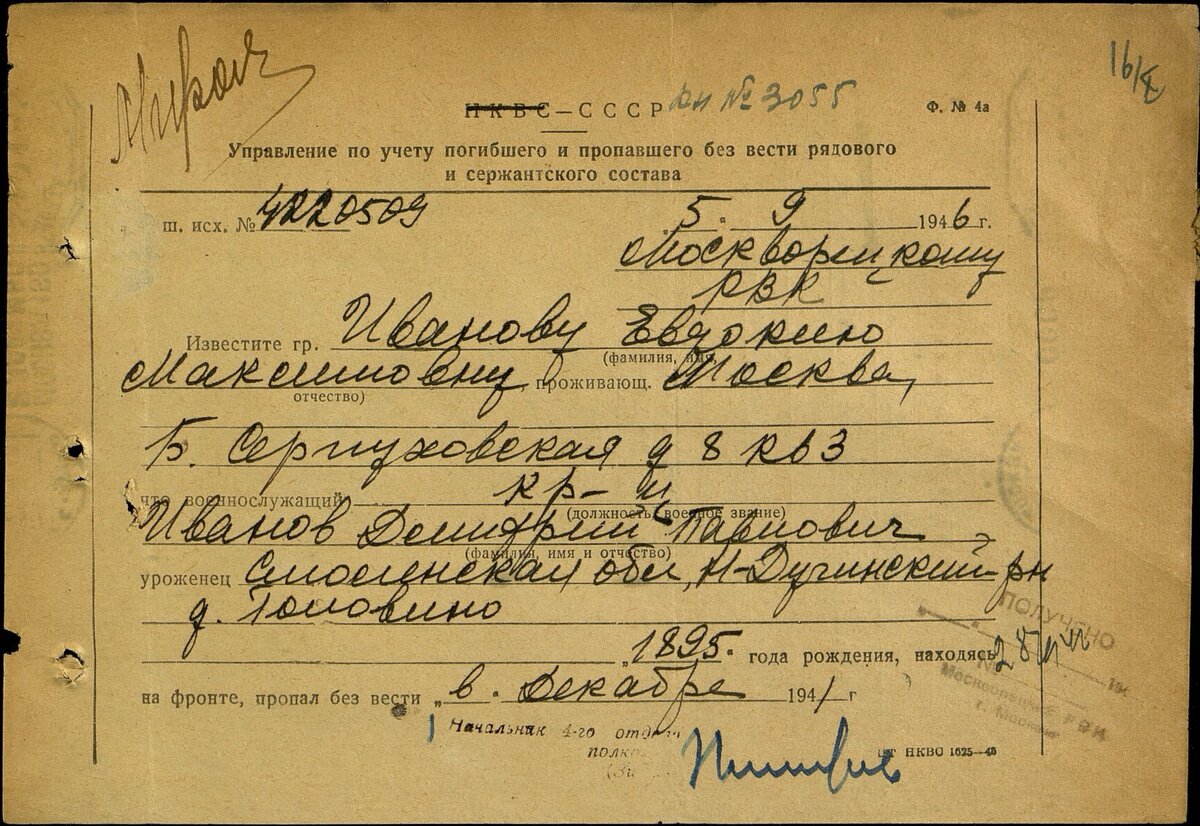 161
НКВС — СССР вн № 3055
Ф. № 4а
Управление по учету погибшего и пропавшего без вести рядового
и сержантского состава
ш. исх. № 4220509
„5“ 9 1946 г.
Москворецкому
РВК
Известите гр. Иванову Евдокию
(фамилия, имя,
Максимовну, проживающ. Москва,
отчество)
Б. Серпуховская д 8 кв 3
что военнослужащий кр-ц
(должность, военное звание)
Иванов Дмитрий Павлович
(фамилия, имя и отчество)
уроженец Смоленская обл, Н-Дугинский р-н
д. Головино
„1895“ года рождения, находясь
на фронте, пропал без вести „в“ Декабре 1941 г
ПОЛУЧЕНО
Москворецкий РВК
г. Москвы
Начальник 4-го отдела
полко
цт НКВО 1625—46